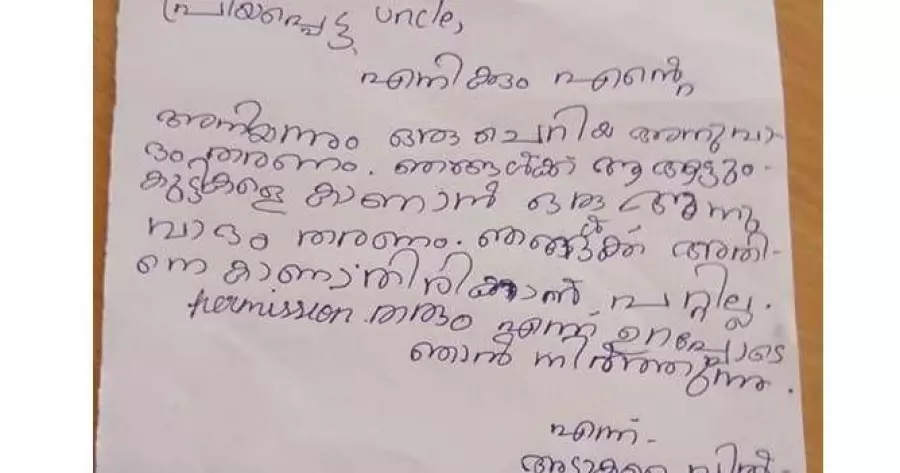 പ്രിയപ്പെട്ട uncle,
എനിക്കും എന്റെ
അനിയനും ഒരു ചെറിയ അനുവാ-
ദം തരണം. ഞങ്ങൾക്ക് ആ ആട്ടും-
കുട്ടികളെ കാണാൻ ഒരു അനു
വാദം തരണം. ഞങ്ങൾക്ക് അതി-
നെ കാണാതിരിക്കാൻ പറ്റില്ല.
permission തരും എന്ന് ഉറപ്പോടെ
ഞാൻ നിർത്തുന്നു.
എന്ന്-